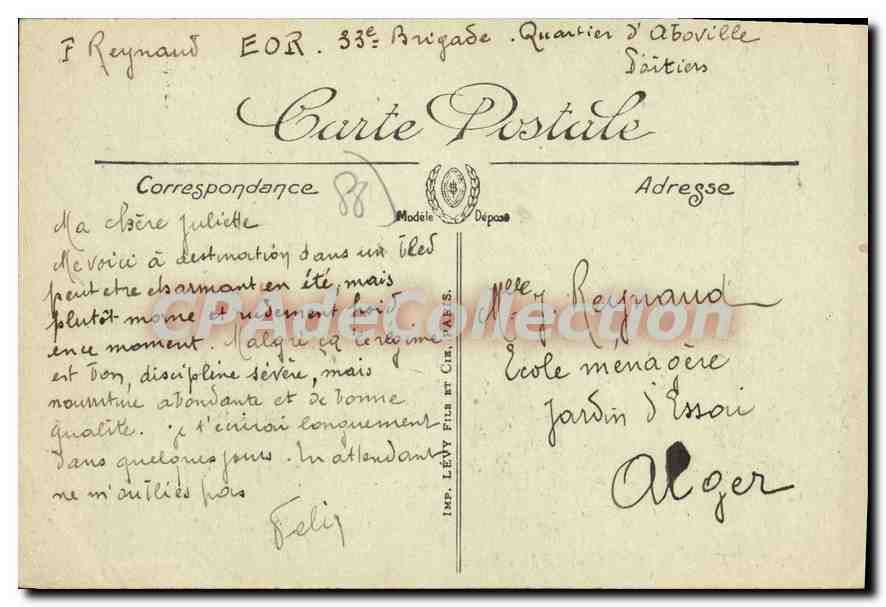 F Reynaud EOR. 33e Brigade. Quartier d'Aboville
Poitiers
Carte Postale
Correspondance
88
Modèle Déposé
Adresse
Ma chère Juliette
Me voici à destination dans un bled
peut etre charmant en été, mais
plutôt morne et rudement froid
en ce moment. Malgré ça le régime
est bon, discipline sévère, mais
nourriture abondante et de bonne
qualité. je t'écrirai longuement
dans quelques jours. En attendant
ne m'oublies pas
Felix
IMP. LÉVY FILS ET CIE, PARIS.
Melle J. Reynaud
Ecole ménagère
Jardin d'Essai
Alger
CPADeCollection